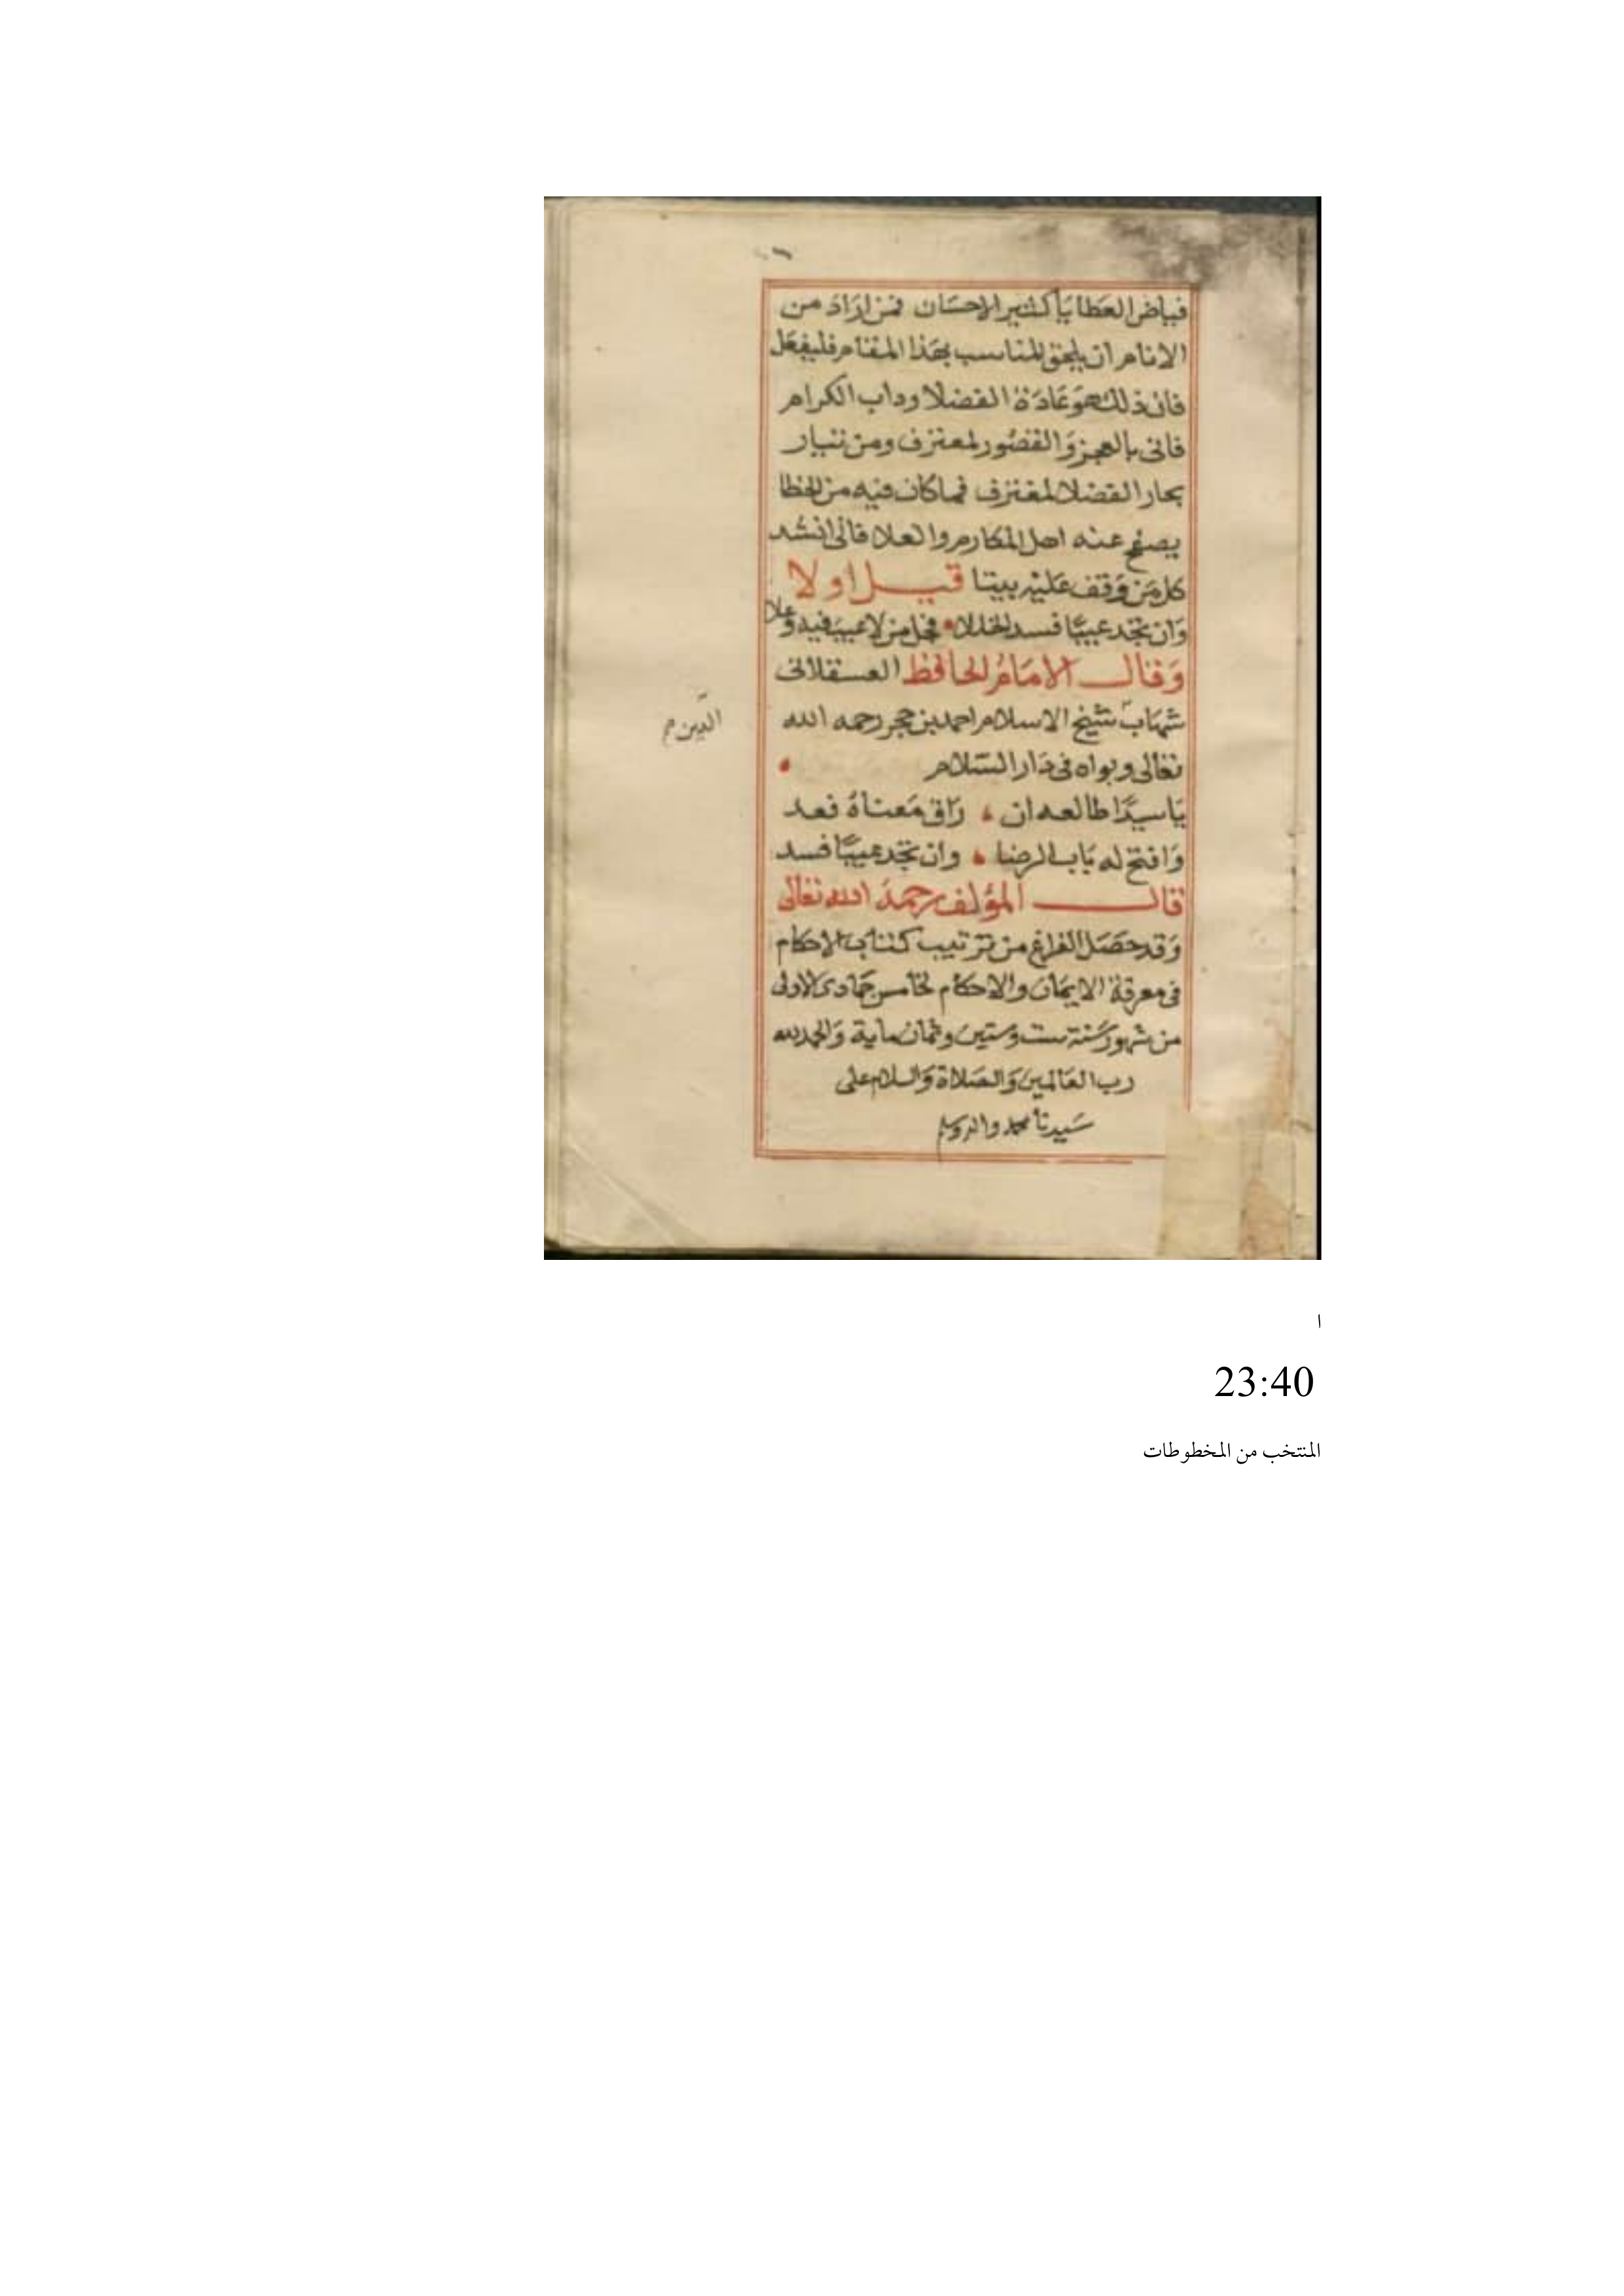 فياض العطا يا كثير الاحسان فمن اراد من
الانام ان يلحق المناسب بهذا المقام فليفعل
فان ذلك هو عادة الفضلا وداب الكرام
فانى بالعجز والقصور لمعترف ومن تيار
بحار الفضلا لمغترف فما كان فيه من الخطا
يصفح عنه اهل المكارم والعلا فانى انشد
كل من وقف عليه بيتا قيل اولا
وان تجد عيبا فسد الخللا فجل من لا عيب فيه وعلا
وقال الامام الحافظ العسقلانى
شهاب شيخ الاسلام احمد بن حجر رحمه الله
الدين
تعالى وبواه فى دار السلام
يا سيدا طالعه ان راق معناه فعد
وافتح له باب الرضا وان تجد عيبا فسد
قال المؤلف رحمه الله تعالى
وقد حصل الفراغ من ترتيب كتاب الاحكام
فى معرفة الايمان والاحكام لخامس جمادى الاولى
من شهور سنة ست وستين وثمان ماية والحمد لله
رب العالمين والصلاة والسلام على
سيدنا محمد واله وسلم
ا
23:40
المنتخب من المخطوطات